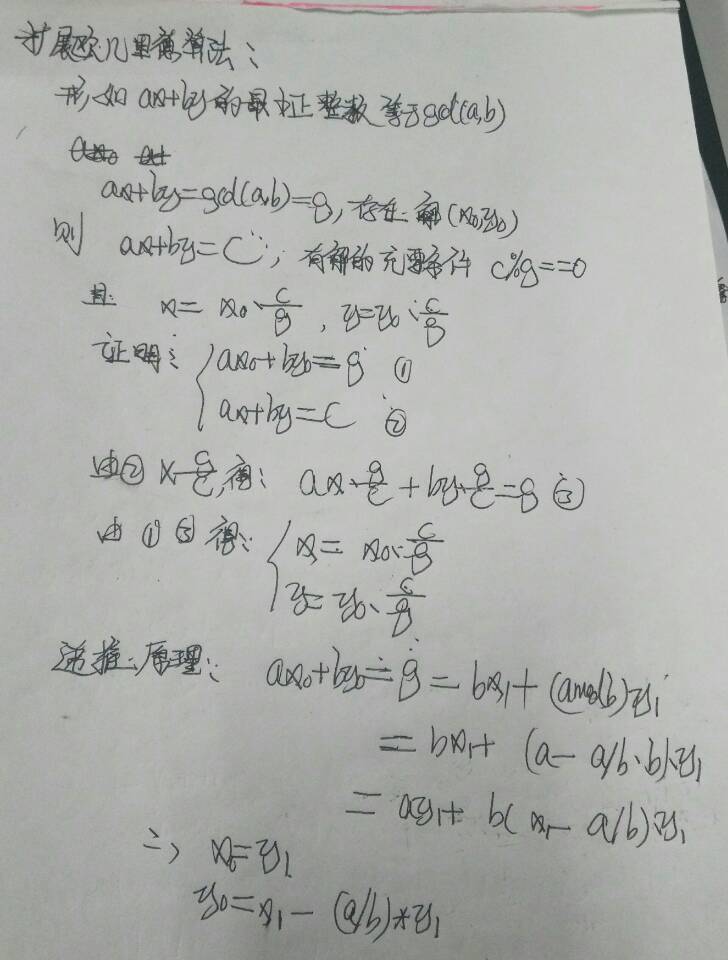 扩展欧几里德算法:
形如 ax+by 的最小正整数等于gcd(a,b)
ax+by=gcd(a,b)=g, 存在解(x₀,y₀)
则 ax+by=C, 有解的充要条件 c%g==0
且: x=x₀·c/g, y=y₀·c/g
证明: { ax₀+by₀=g ①
ax+by=C ②
由② × g/c, 得: ax·g/c+by·g/c=g ③
由①③得: { x=x₀·c/g
y=y₀·c/g
递推原理: ax₀+by₀=g=bx₁+(amodb)y₁
=bx₁+(a-a/b·b)·y₁
=ay₁+b(x₁-a/b)·y₁
∴ x₀=y₁
y₀=x₁-(a/b)*y₁